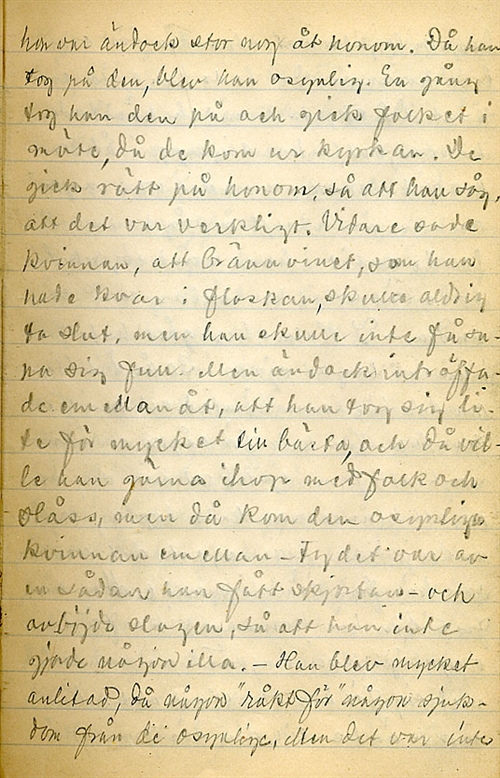 hon var ändock stor nog åt honom. Då han
tog på den, blev han osynlig. En gång
tog han den på och gick folket i
möte, då de kom ur kyrkan. De
gick rätt på honom, så att han såg,
att det var verkligt. Vidare sade
kvinnan, att brännvinet, som han
hade kvar i flaskan, skulle aldrig
ta slut, men han skulle inte få su-
pa sig full. Men ändock inträffa-
de emellanåt, att han tog sig li-
te för mycket till bästa, och då vil-
le han gärna ihop med folk och
slåss, men då kom den osynliga
kvinnan emellan – ty det var av
en sådan han fått skjortan – och
avböjde slagen, så att han inte
gjorde någon illa. – Han blev mycket
anlitad, då någon "råkt för" någon sjuk-
dom från de osynliga, Men det var inte